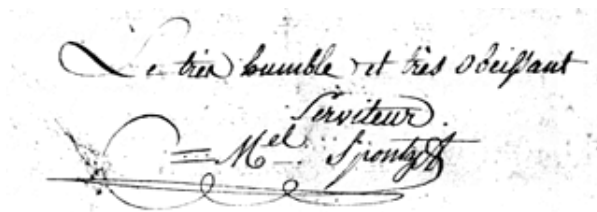 Le très humble et très obeissant
Serviteur.
= Mel. Spontz